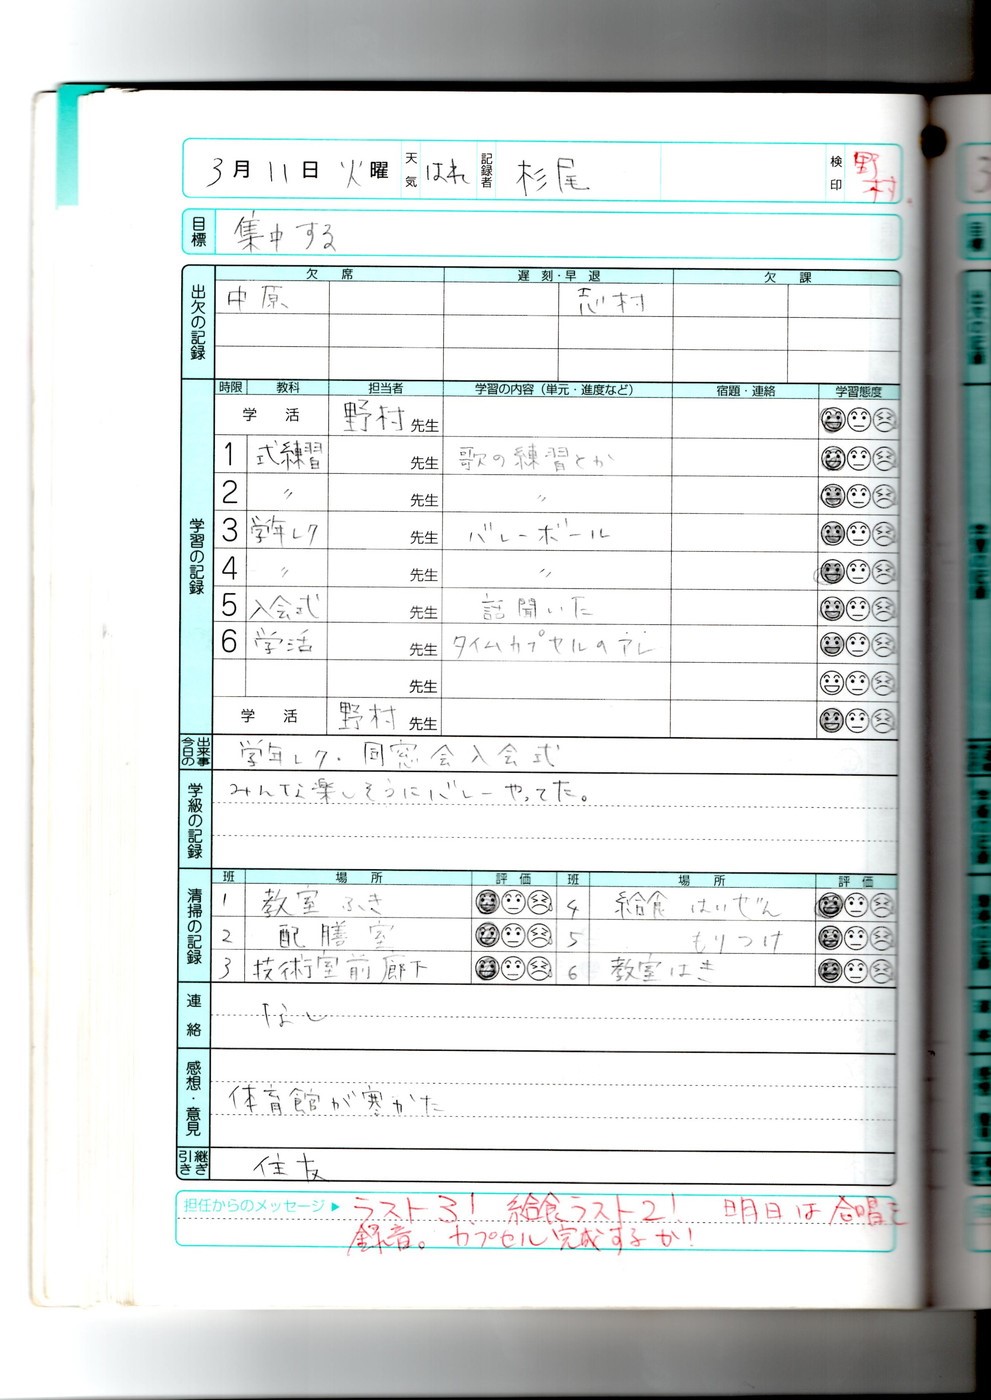 3月11日 火曜 天気 はれ 記録者 杉尾 検印 野村
目標 集中する
出欠の記録 欠席 遅刻・早退 欠課
中原 志村
学習の記録 時限 教科 担当者 学習の内容（単元・進度など） 宿題・連絡 学習態度
学活 野村 先生
1 式練習 先生 歌の練習とか
2 〃 先生 〃
3 学年レク 先生 バレーボール
4 〃 先生 〃
5 入会式 先生 話聞いた
6 学活 先生 タイムカプセルのアレ
先生
学活 野村 先生
今日の出来事 学年レク・同窓会入会式
学級の記録 みんな楽しそうにバレーやってた。
清掃の記録 班 場所 評価 班 場所 評価
1 教室ふき 4 給食 はいぜん
2 配膳室 5 もりつけ
3 技術室前廊下 6 教室はき
連絡 なし
感想・意見 体育館が寒かた
引き継ぎ 住友
担任からのメッセージ▶ ラスト3! 給食ラスト2! 明日は合唱を
録音。カプセル完成するか!